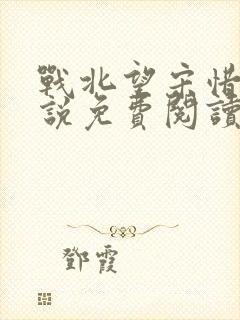 戰北望宋惜
說免費閱讀
鄧霞